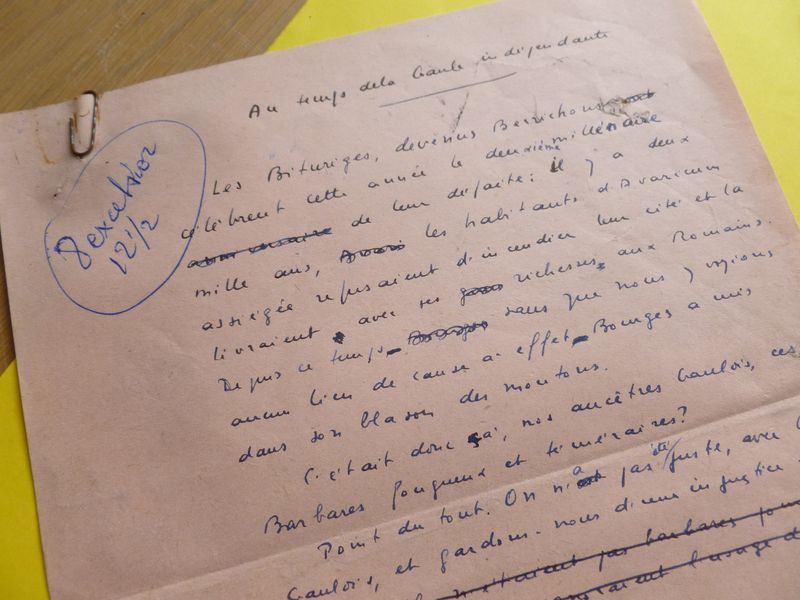 Au temps de la Gaule indépendante
8 excelsior
12 1/2
Les Bituriges, devenus Berrichons
célèbrent cette année le deuxième millénaire
anniversaire de leur défaite : il y a deux
mille ans, Avari les habitants d'Avaricum
assiégée refusaient d'incendier leur cité et la
livraient avec ses richesses aux Romains.
Depuis ce temps - sans que nous y voyions
aucun lien de cause à effet - Bourges a mis
dans son blason des moutons.
C'était donc ça, nos ancêtres Gaulois, ces
Barbares fougueux et téméraires?
Point du tout. On n'a pas été juste, avec
Gaulois, et gardons-nous d'une injustice
n'étaient pas barbares
l'usage